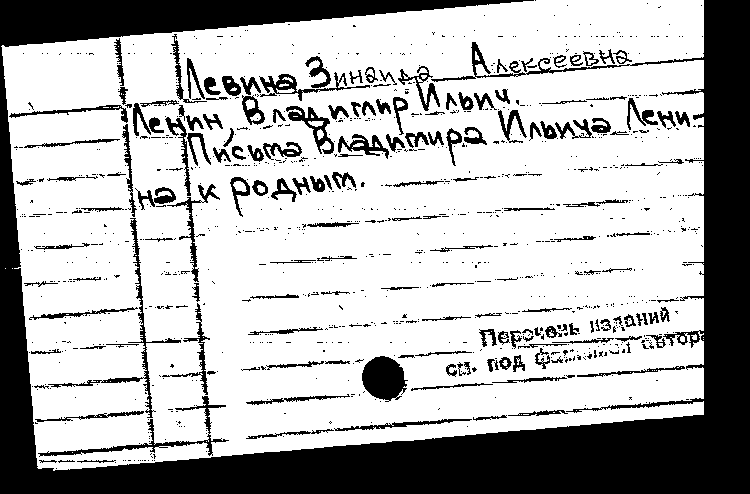 Левина, Зинаида Алексеевна
Ленин, Владимир Ильич.
Письма Владимира Ильича Лени-
на к родным.
Перечень изданий
см. под фамилией автора